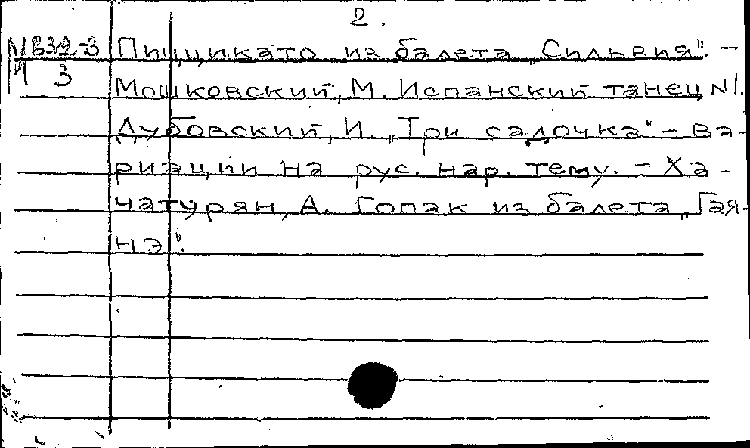 2.
МВ32-3 Пиццикато из балета „Сильвия". -
М 3
Мошковский, М. Испанский танец №1.
Дубовский, И. „Три садочка" - ва-
риации на рус. нар. тему. - Ха-
чатурян, А. Гопак из балета „Гая-
нэ".